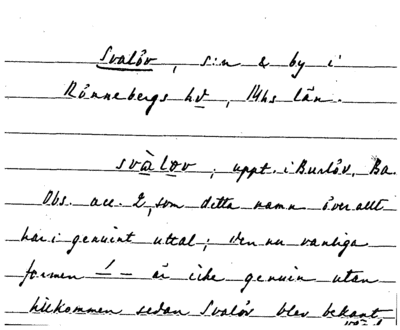 Svalöv, s:n & by i
Rönnebergs hd, Mhs län.
svàlov, uppt. i Burlöv, Ba.
Obs. acc. 2, som detta namn överallt
har i genuint uttal; den nu vanliga
formen ´ – är icke genuin utan
tillkommen sedan Svalöv blev bekant,